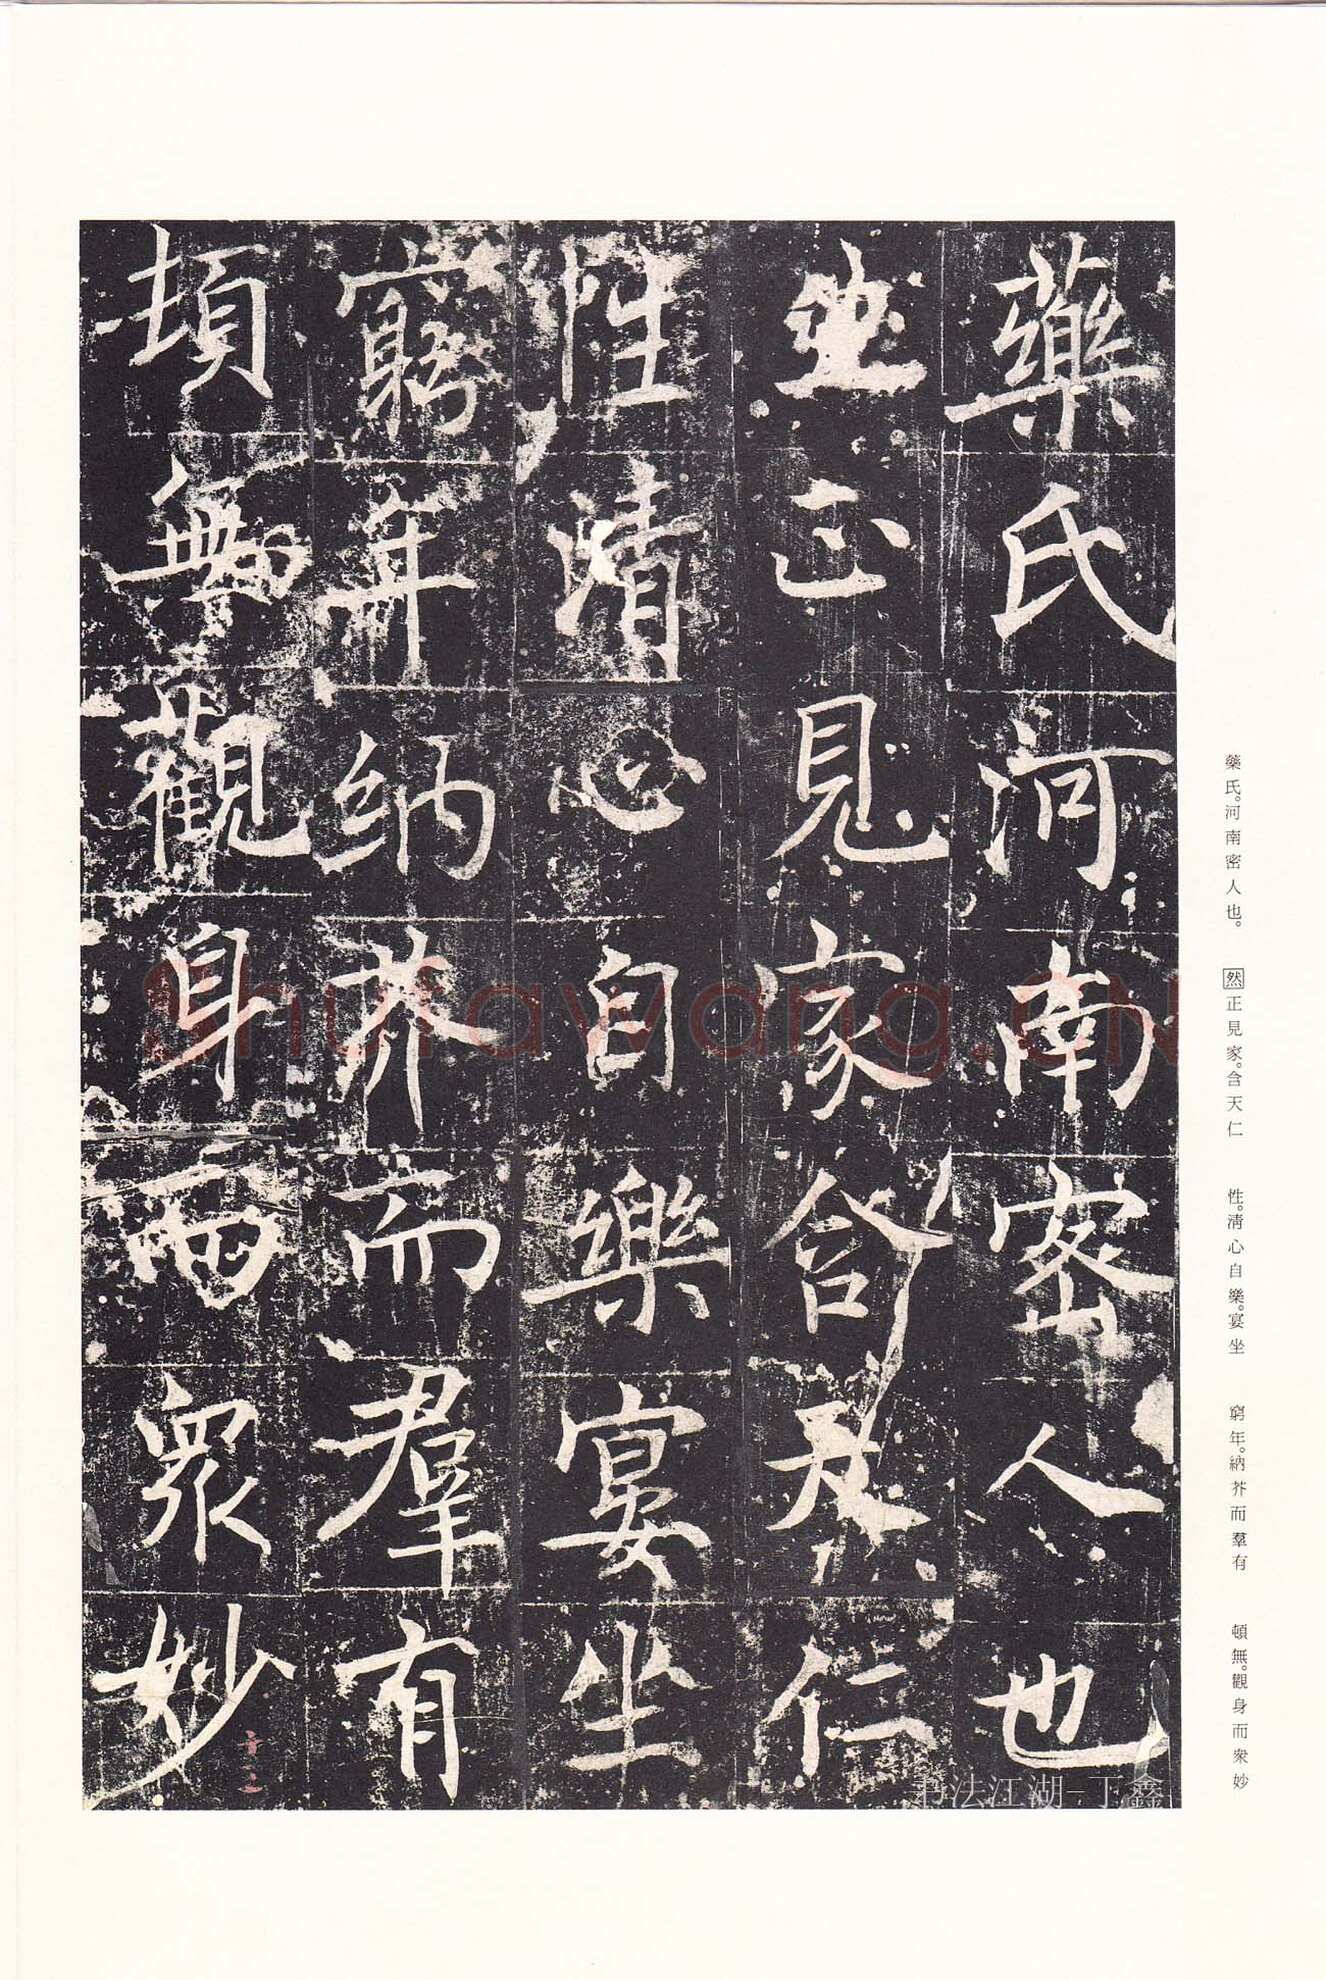 藥氏河南密人也
正見家含天仁
性清心自樂宴坐
窮年納芥而羣有
頓無觀身而衆妙
藥氏。河南密人也。
然正見家。含天仁
性。清心自樂。宴坐
窮年。納芥而羣有
頓無。觀身而衆妙
shufawang.cn
书法江湖-丁鑫